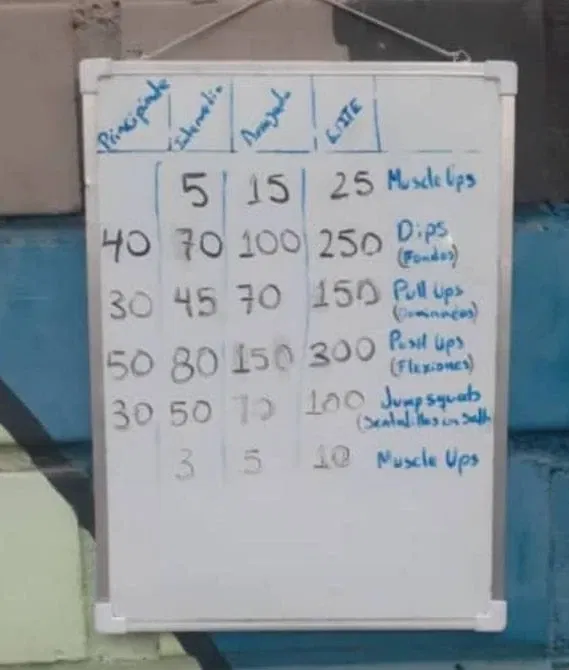 Principiante Intermedio Avanzado ELITE
5 15 25 Muscle Ups
40 70 100 250 Dips
(Fondos)
30 45 70 150 Pull Ups
(Dominadas)
50 80 150 300 Push Ups
(Flexiones)
30 50 70 100 Jump squats
(Sentadillas con Salto
3 5 10 Muscle Ups